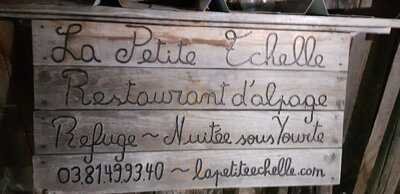 La Petite Echelle
Restaurant d'alpage
Refuge ~ Nuitée sous Yourte
03.81.49.93.40 ~ lapetiteechelle.com